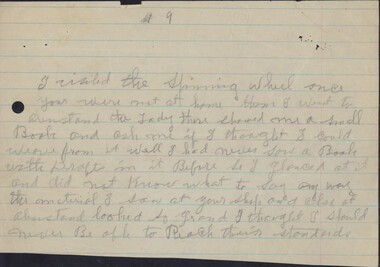 9
I visited the Spinning Wheel once
you were not at home then I went to
the Lady there showed me a small
Book and ask me if I thought I could
weave from it well I had never seen a Book
with in it Before so I glanced at it
and did not know what to say any way
the material I saw at your shop and also at
looked so grand I thought I should
never Be able to Reach their standards